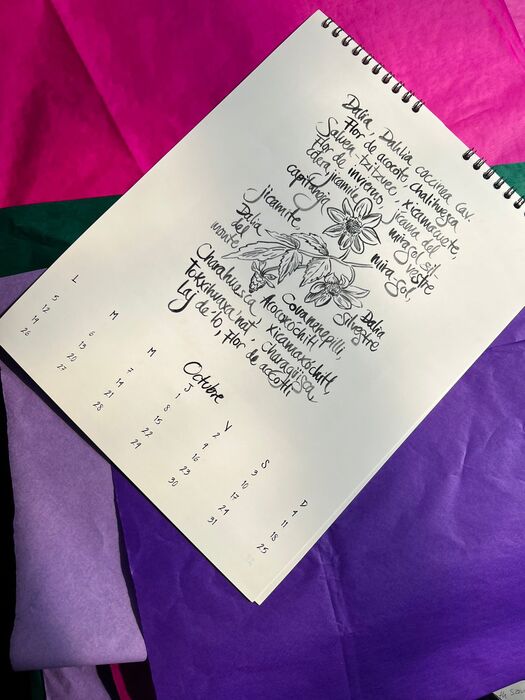 Dalia, Dahlia coccinea Cav.
Flor de acocote, chalihuesca
Flor de invierno, jicama del
jicamilla mirasol sil-
vestre
jicamite, mira sol,
Dalia
del
monte,
Dalia
silvestre
Charahuesca, Covanenepilli,
Tokxihuaxa'nat, Acocoxochitl,
xicamaxóchitl,
Laj de 'lo, Flor de acocotli
Octubre
L M M J V S D
1 2 3 4
5 6 7 8 9 10 11
12 13 14 15 16 17 18
19 20 21 22 23 24 25
26 27 28 29 30 31